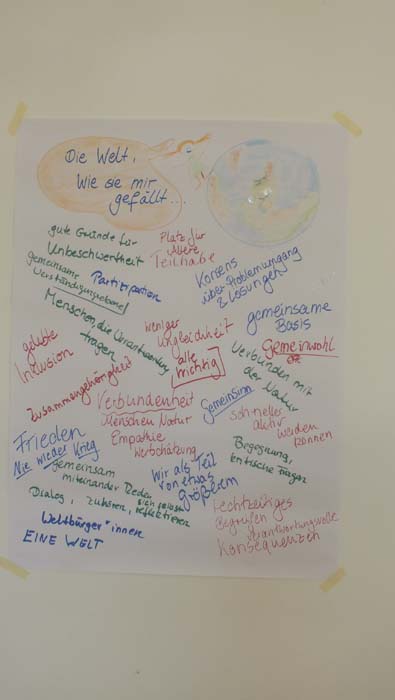 Die Welt,
Wie sie mir
gefällt...
gute Gründe für
Unbeschwertheit
Platz für
Ältere
Teilhabe
gemeinsame
Verständigungsebene
Partizipation
Konsens
über Problemumgang
& Lösungen
Menschen, die Verantwortung
tragen
weniger
Ungleichheit
gemeinsame
Basis
gelebte
Inklusion
alle
wichtig
Gemeinwohl
Verbunden mit
der Natur
Zusammengehörigkeit
Verbundenheit
Menschen Natur
Gemeinsinn
schneller
aktiv
werden
können
Empathie
Wertschätzung
Frieden
Nie wieder Krieg
Begegnung,
kritische Fragen
gemeinsam
miteinander Reden
Dialog, zuhören, sich selbst
reflektieren
Wir als Teil
von etwas
größerem
rechtzeitiges
Begreifen
verantwortungsvolle
Konsequenzen
Weltbürger*innen
EINE WELT